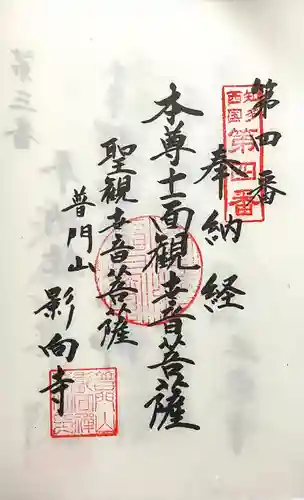 第四番
奉納経
本尊十一面観世音菩薩
聖観世音菩薩
普門山
影向寺
知多
西国
第四番
第三番